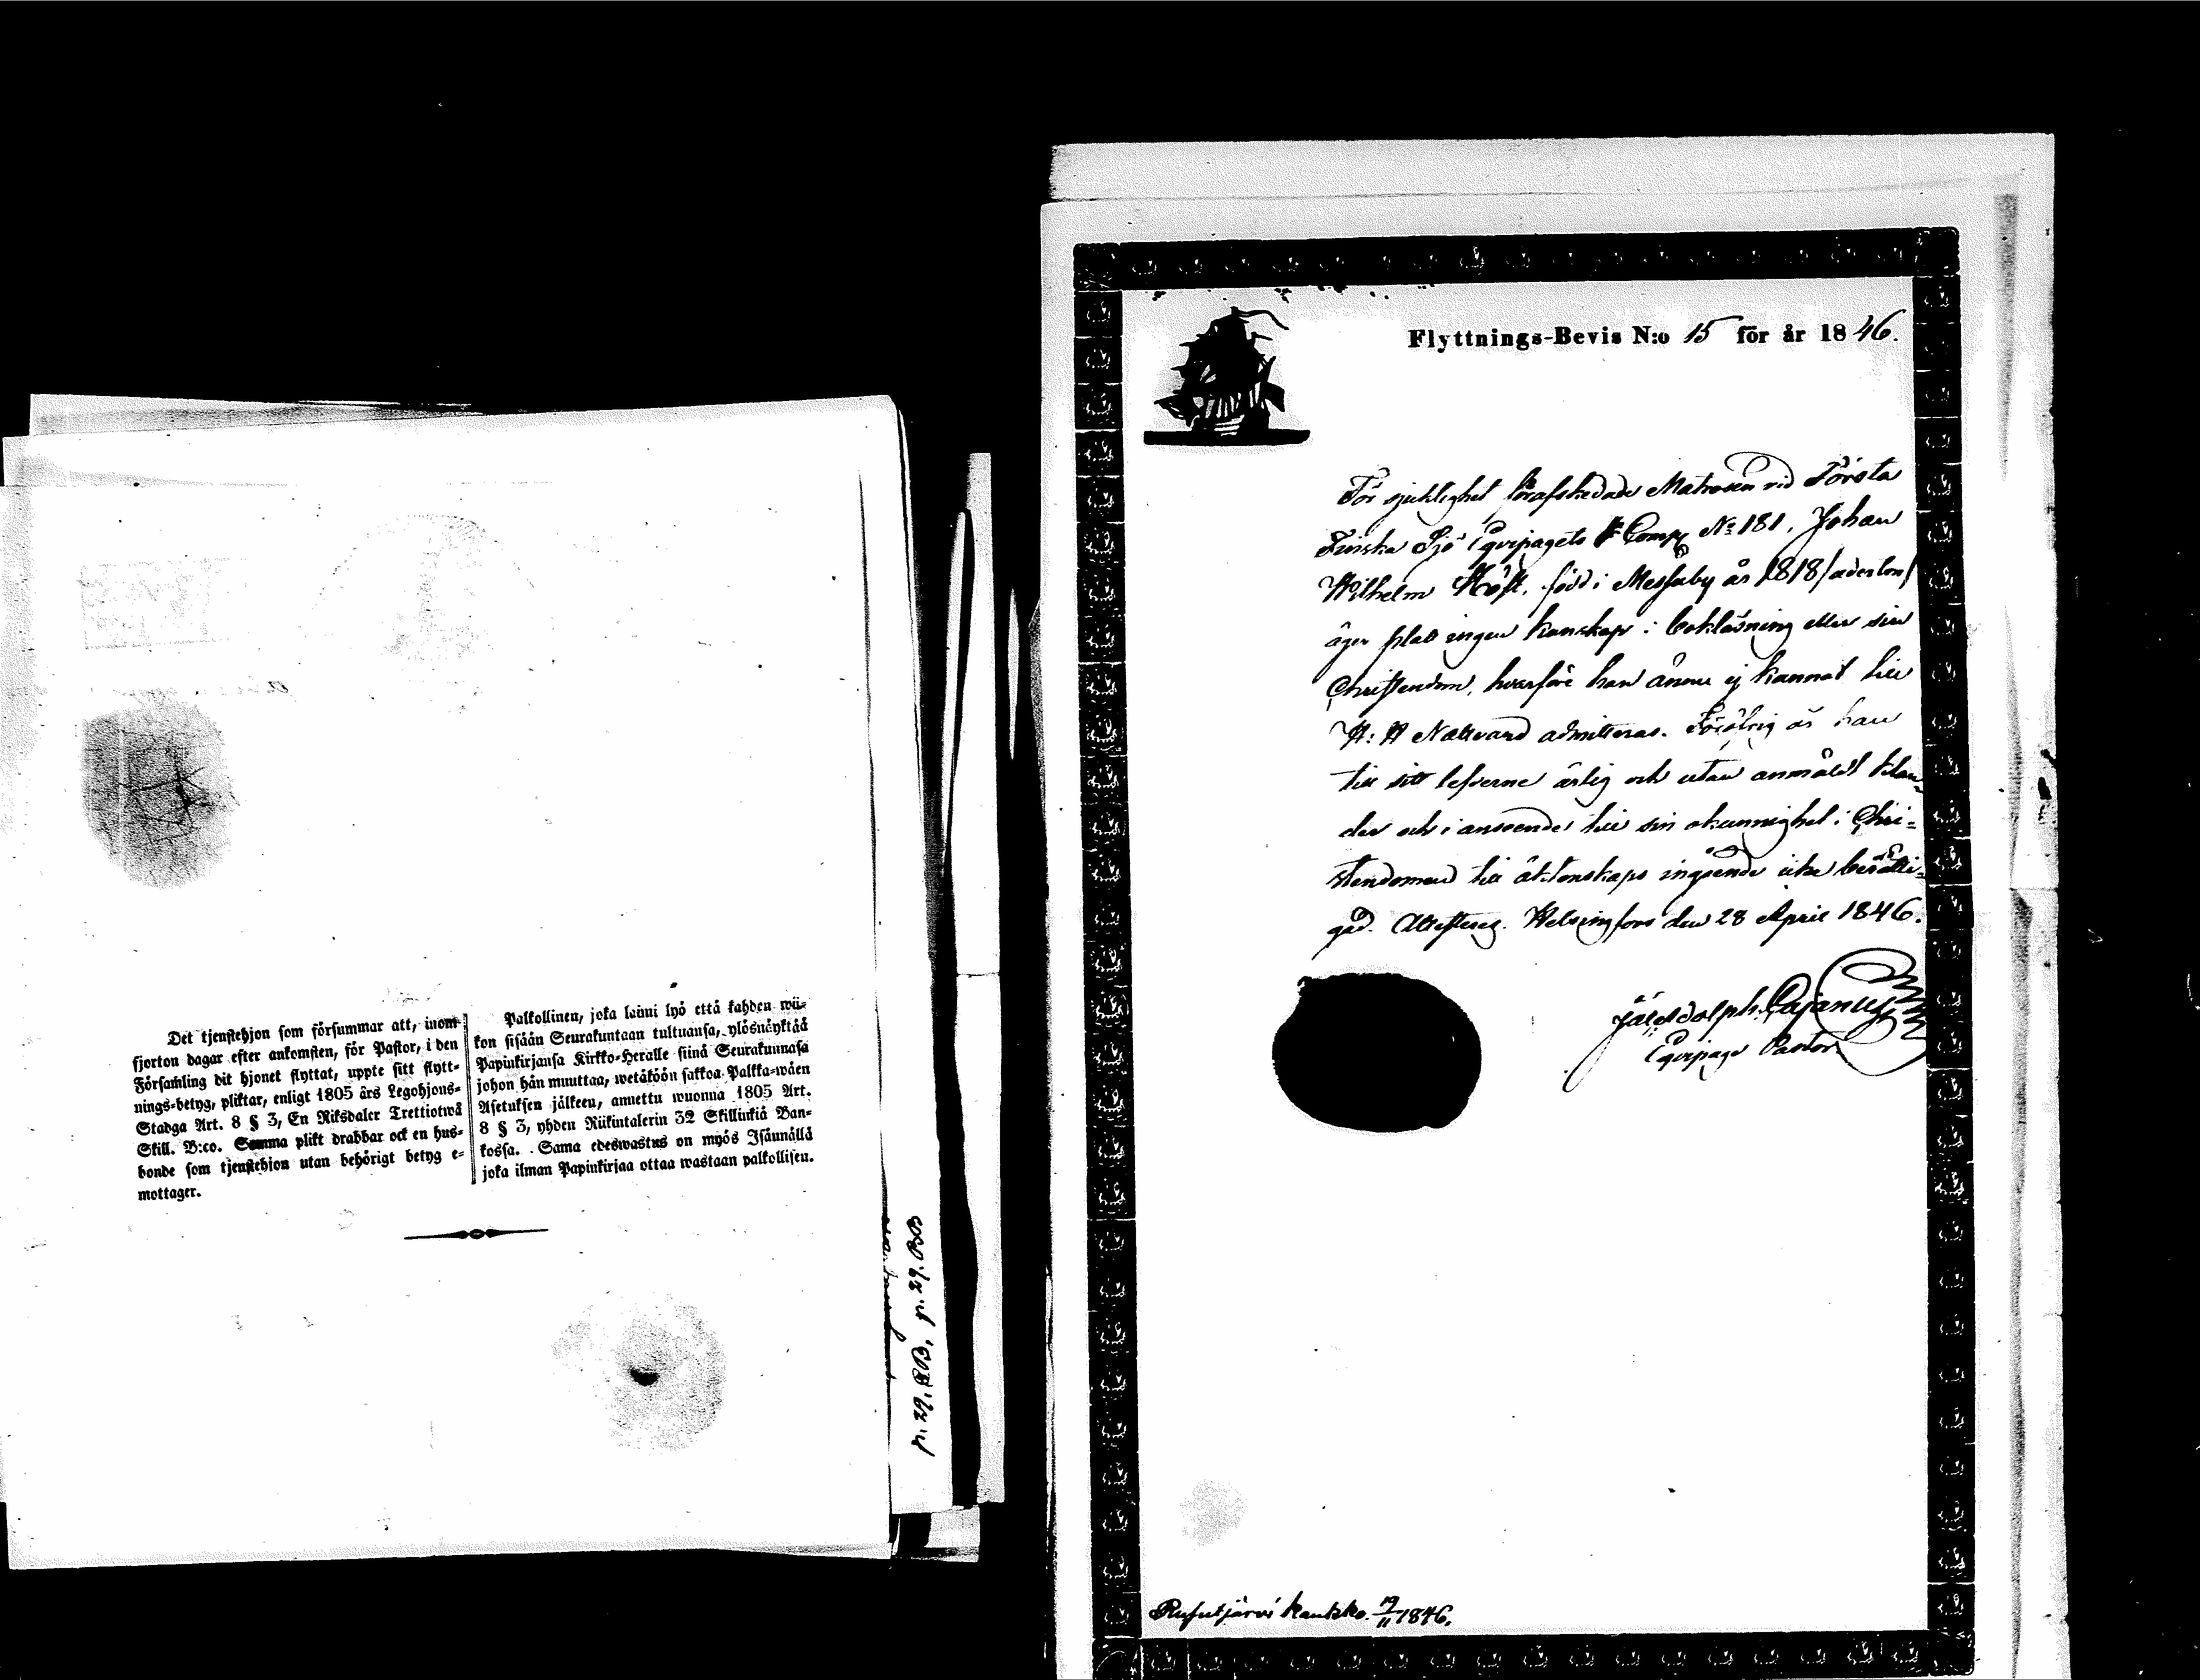 Det tjenstehjon som försummar att, inom
fjorton dagar efter ankomsten, för Pastor, i den
Församling dit hjonet flyttat, uppte sitt flytt-
nings-betyg, pliktar, enligt 1805 års Legohjons-
Stadga Art. 8 § 3, En Riksdaler Trettiotwå
Skill. B:co. Samma plikt drabbar ock en hus-
bonde som tjenstehjon utan behörigt betyg e-
mottager.
Palkollinen, joka laimi lyö että kahden wii-
kon sisään Seurakuntaan tultuansa, ylösnäyktää
Papinkirjansa Kirkko-Heralle siinä Seurakunnasa
johon hän muuttaa, wetäköön sakkoa Palkka-wäen
Asetuksen jälkeen, annettu wuonna 1805 Art.
8 § 3, yhden Riikintalerin 32 Skillinkiä Ban-
kossa. Sama edeswastus on myös Isäunällä
joka ilman Papinkirjaa ottaa wastaan palkollisen.
p. 29. BB. p. 29. BB
Flyttnings-Bevis N:o 15 för år 1846.
För sjuklighet förafskedade Matrosen vid Första
Finska Sjö Eqvipagets Comp N:o 181, Johan
Wilhelm född i Messuby år 1818/aderton/
äger platt ingen kunskap i bokläsning eller sin
Christendom, hvarföre han ännu ej kunnat till
H: H Nattvard admitteras. Föröfrig är han
till sitt lefverne ärlig och utan anmäldt klan-
der och i anseende till sin okunnighet i Chri-
stendomen till äktenskaps ingående icke berätti-
gad. Attesteras. Helsingfors den 28 April 1846.
Adolph. Cajanus
Eqvipage Pastor.
19/11 1846.